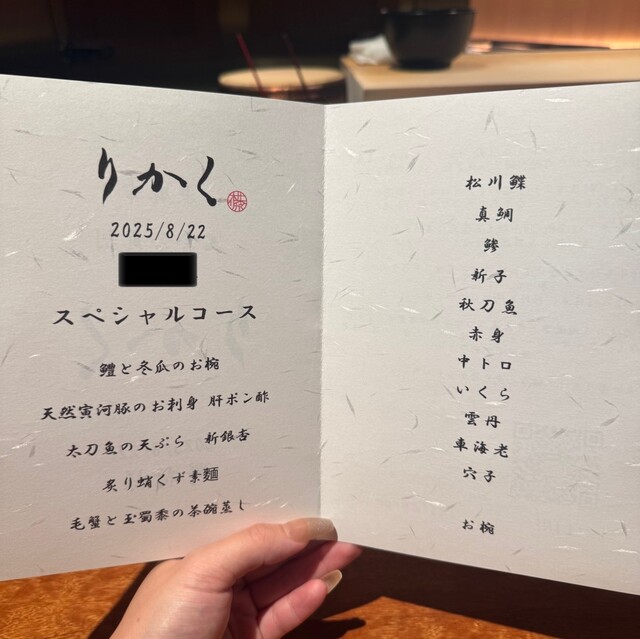 りかく
2025/8/22
スペシャルコース
鱧と冬瓜のお椀
天然寅河豚のお刺身 肝ポン酢
太刀魚の天ぷら 新銀杏
炙り蛸くず素麺
毛蟹と玉蜀黍の茶碗蒸し
松川鰈
真鯛
鯵
新子
秋刀魚
赤身
中トロ
いくら
雲丹
車海老
穴子
お椀